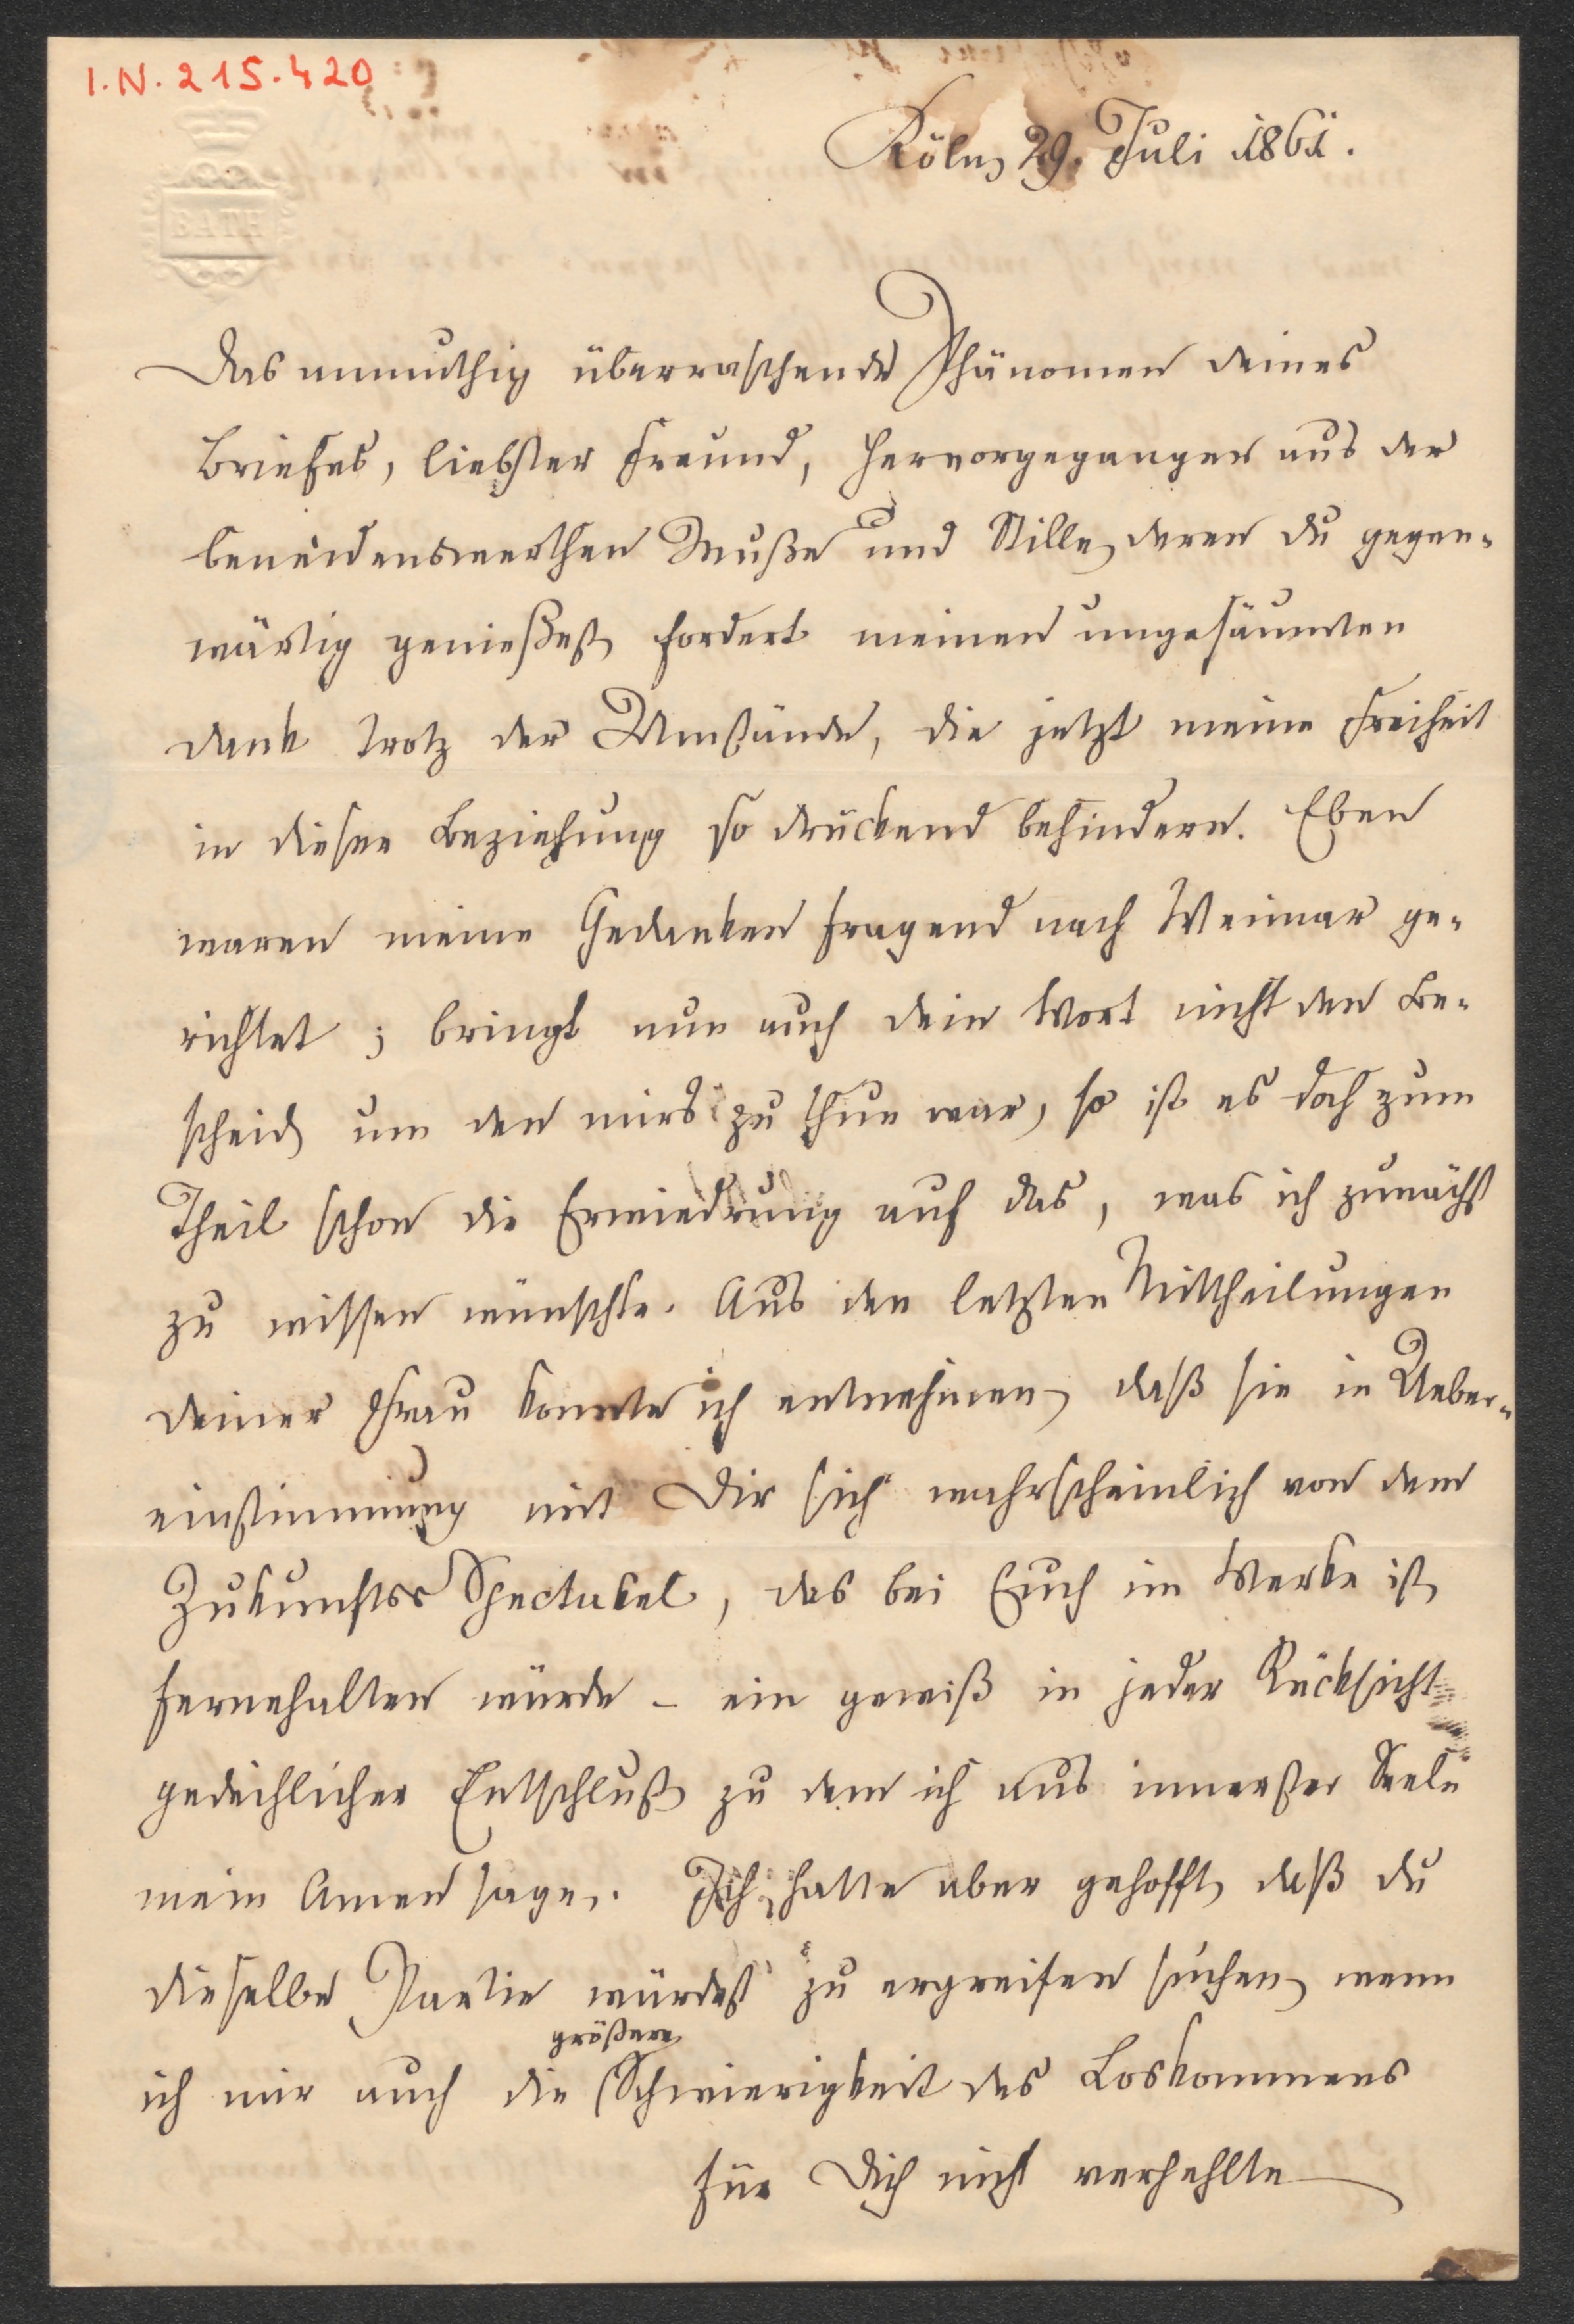 I.N. 215.420
BATH
Köln, 29. Juli 1861.
Das anmuthig überraschende Phänomen deines
Briefes, liebster Freund, hervorgegangen aus der
beneidenswerthen Muße und Stille, deren du gegen-
wärtig genießest, fordert meinen ungesäumten
Dank trotz der Umstände, die jetzt meine Freiheit
in dieser Beziehung so drückend behindern. Eben
waren meine Gedanken fragend nach Weimar ge-
richtet; bringt nun auch dein Wort nicht den Be-
scheid, um den mirs zu thun war, so ist es doch zum
Theil schon die Erwiedrung auf das, was ich zunächst
zu wissen wünschte. Aus den letzten Mittheilungen
deiner Frau konnte ich entnehmen, daß sie in Ueber-
einstimmung mit Dir sich wahrscheinlich von dem
Zukunfts-Spectakel, das bei Euch im Werke ist,
fernehalten würde – ein gewiß in jeder Rücksicht
gedeihlicher Entschluß, zu dem ich aus innerster Seele
mein Amen sage. Ich hatte aber gehofft, daß du
dieselbe Partie würdest zu ergreifen suchen, wenn
größere
ich mir auch die Schwierigkeit des Loskommens
für Dich nicht verhehlte